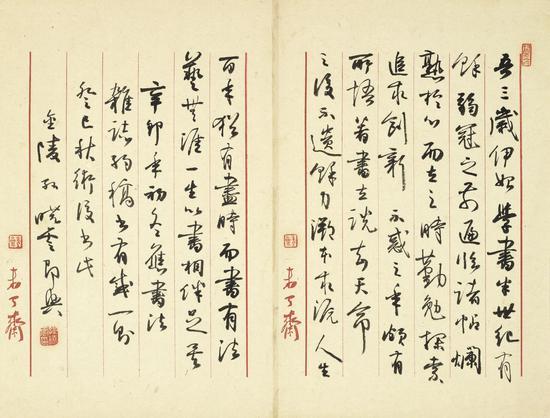 吾三歲伊始學書半世紀有
餘弱冠之前遍臨諸帖爛
熟於心而立之時勤勉探索
追求創新不惑之年頗有
所悟著書立說知天命
之後不遺餘力溯本求源人生
百年猶有盡時而書有法
藝無涯一生以書相伴足矣
辛卯年初冬舊書法
雜誌約稿書有感一則
癸巳秋術後書此
金陵孫曉雲即興